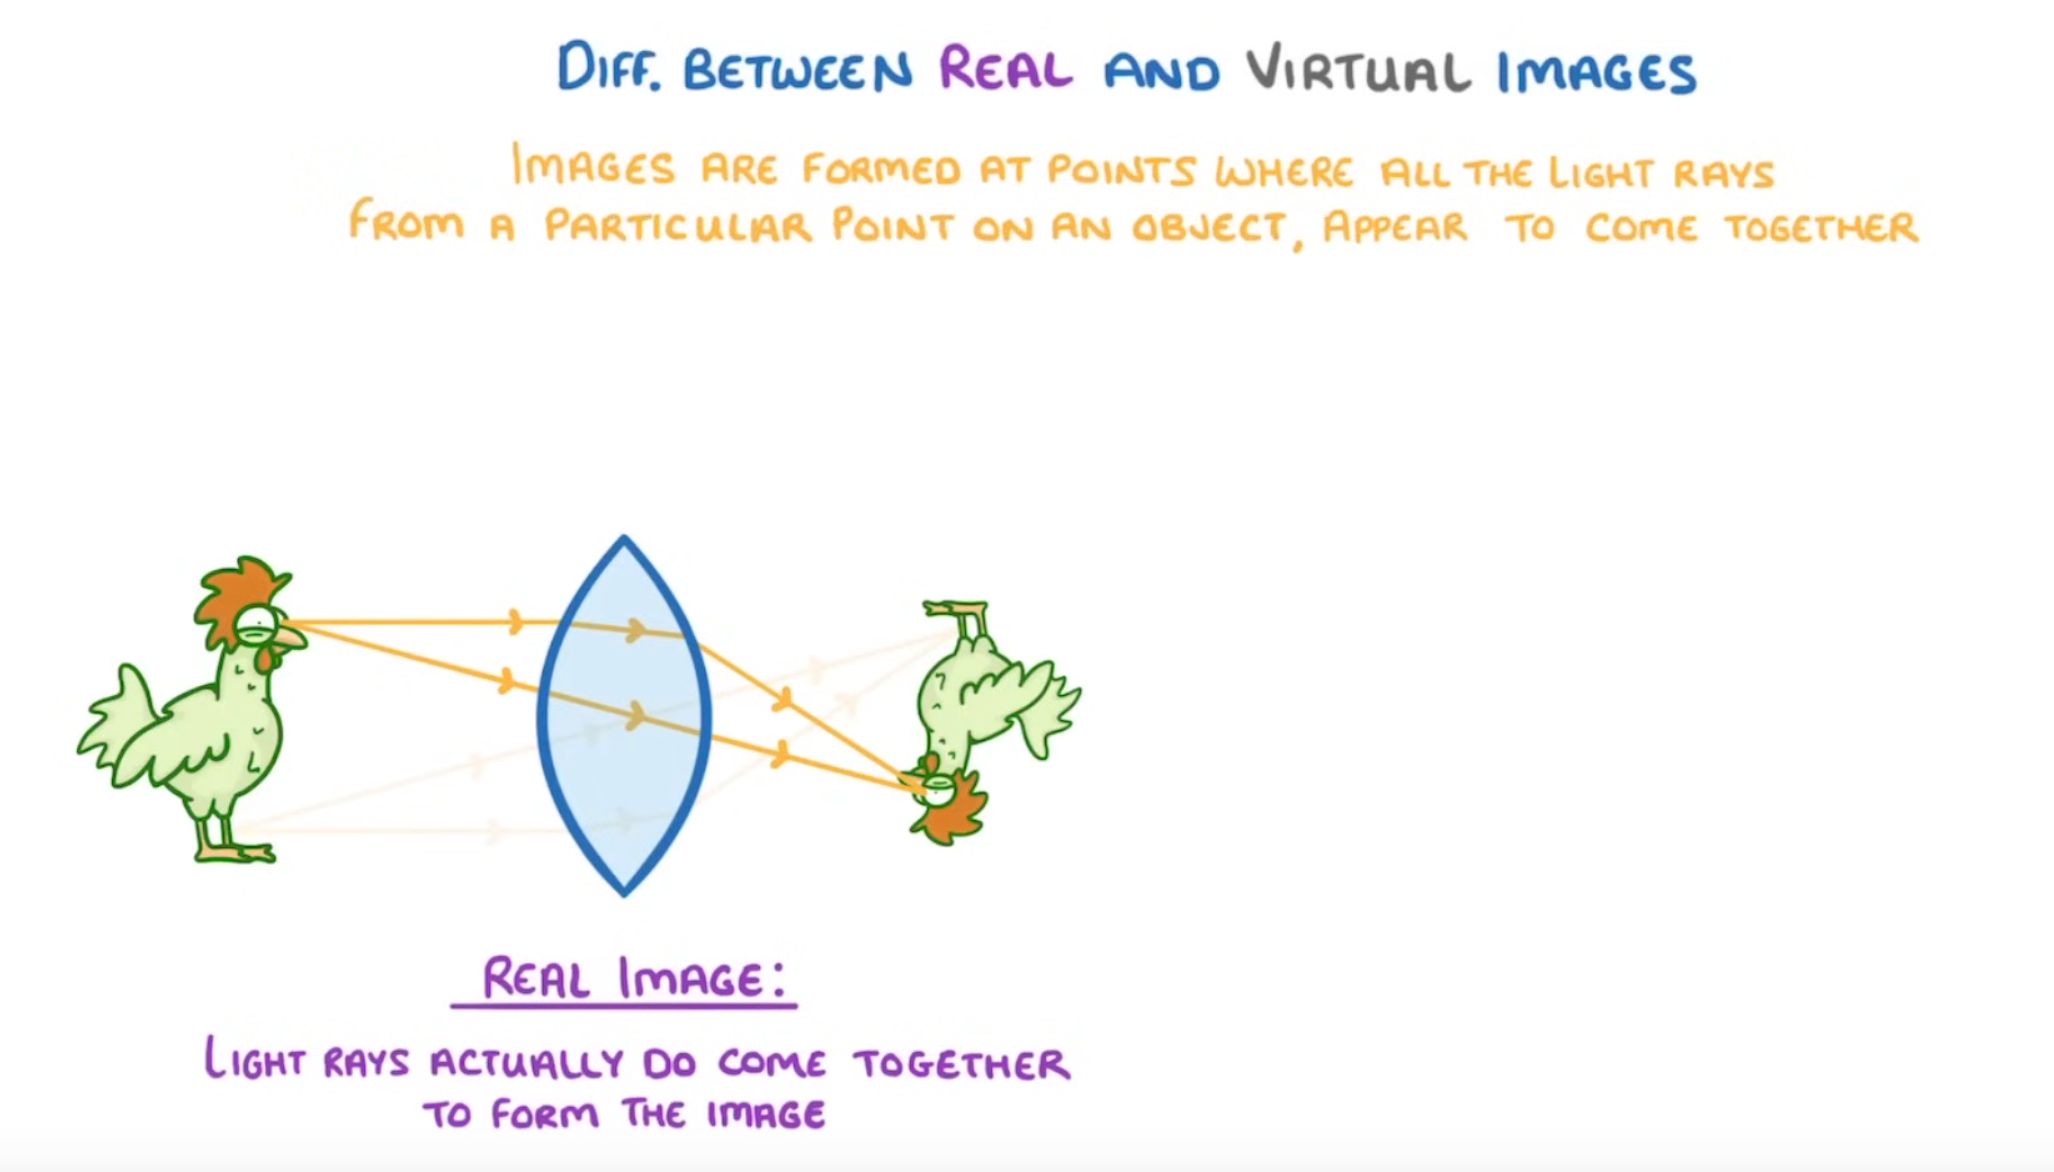 DIFF. BETWEEN REAL AND VIRTUAL IMAGES
IMAGES ARE FORMED AT POINTS WHERE ALL THE LIGHT RAYS
FROM A PARTICULAR POINT ON AN OBJECT, APPEAR TO COME TOGETHER
REAL IMAGE:
LIGHT RAYS ACTUALLY DO COME TOGETHER
TO FORM THE IMAGE